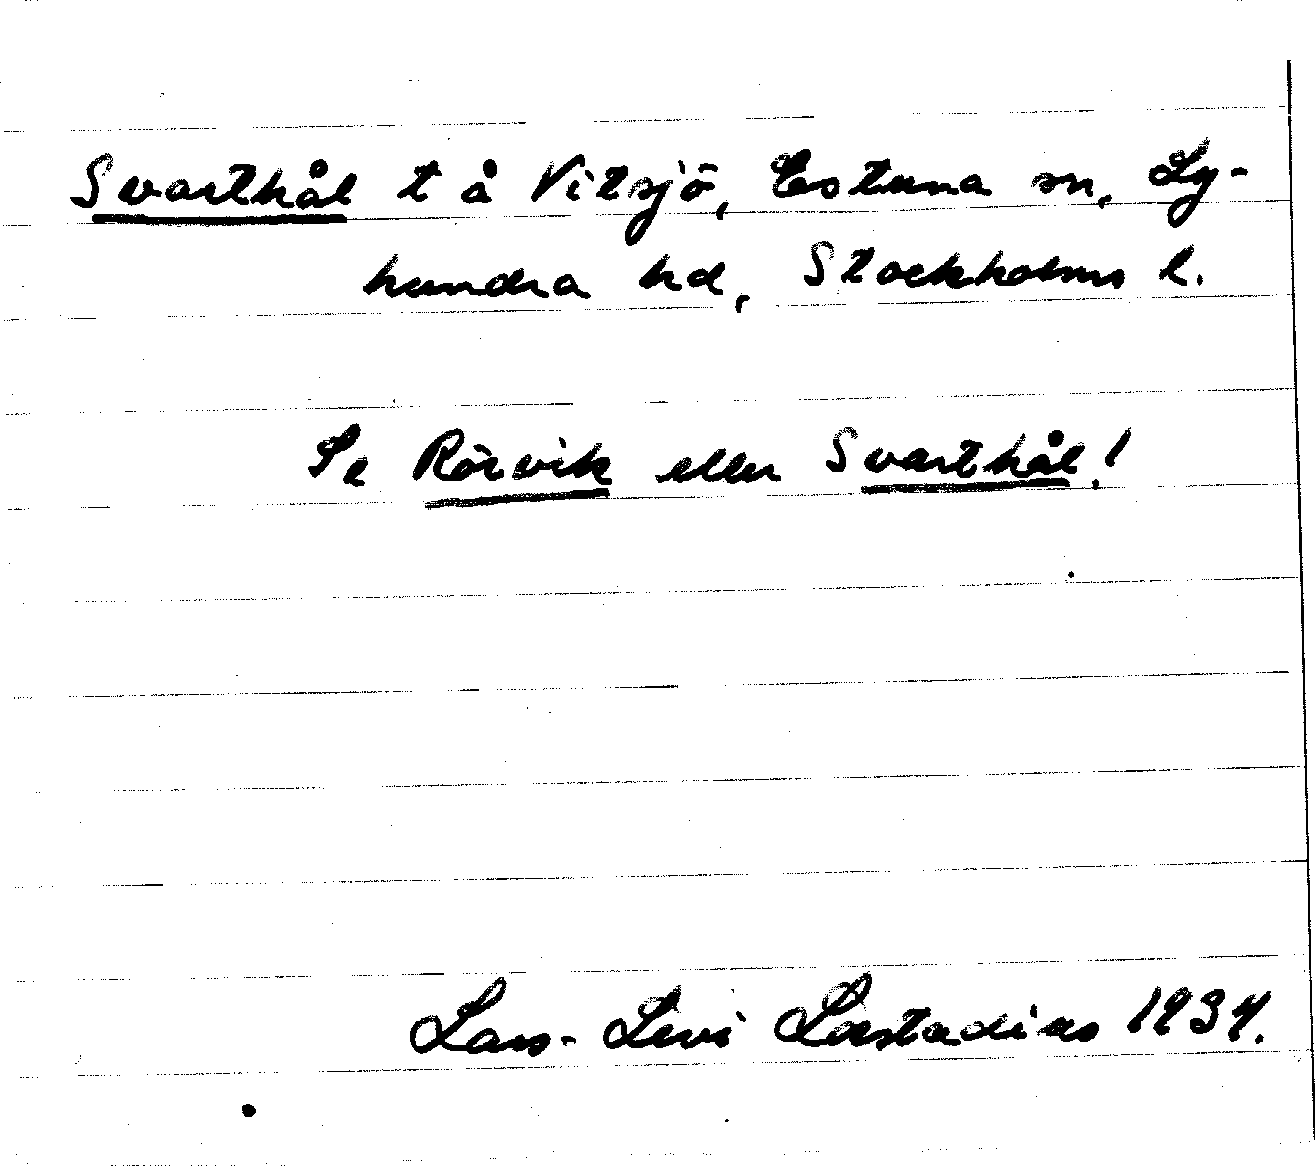 Svarthål t å Vitsjö, Estuna sn, Ly-
hundra hd, Stockholms l.
Se Rörvik eller Svarthål!
Lars-Levi Læstadius 1934.